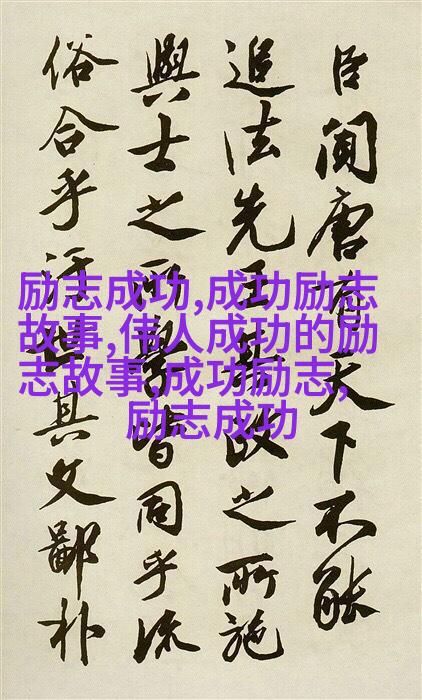 臣聞唐有天下不能
追法先王政之所施
與士之所學皆同乎流
俗合乎汙世其文鄙朴
励志成功,成功励志
故事,伟人成功的励
志故事,成功励志,
励志成功